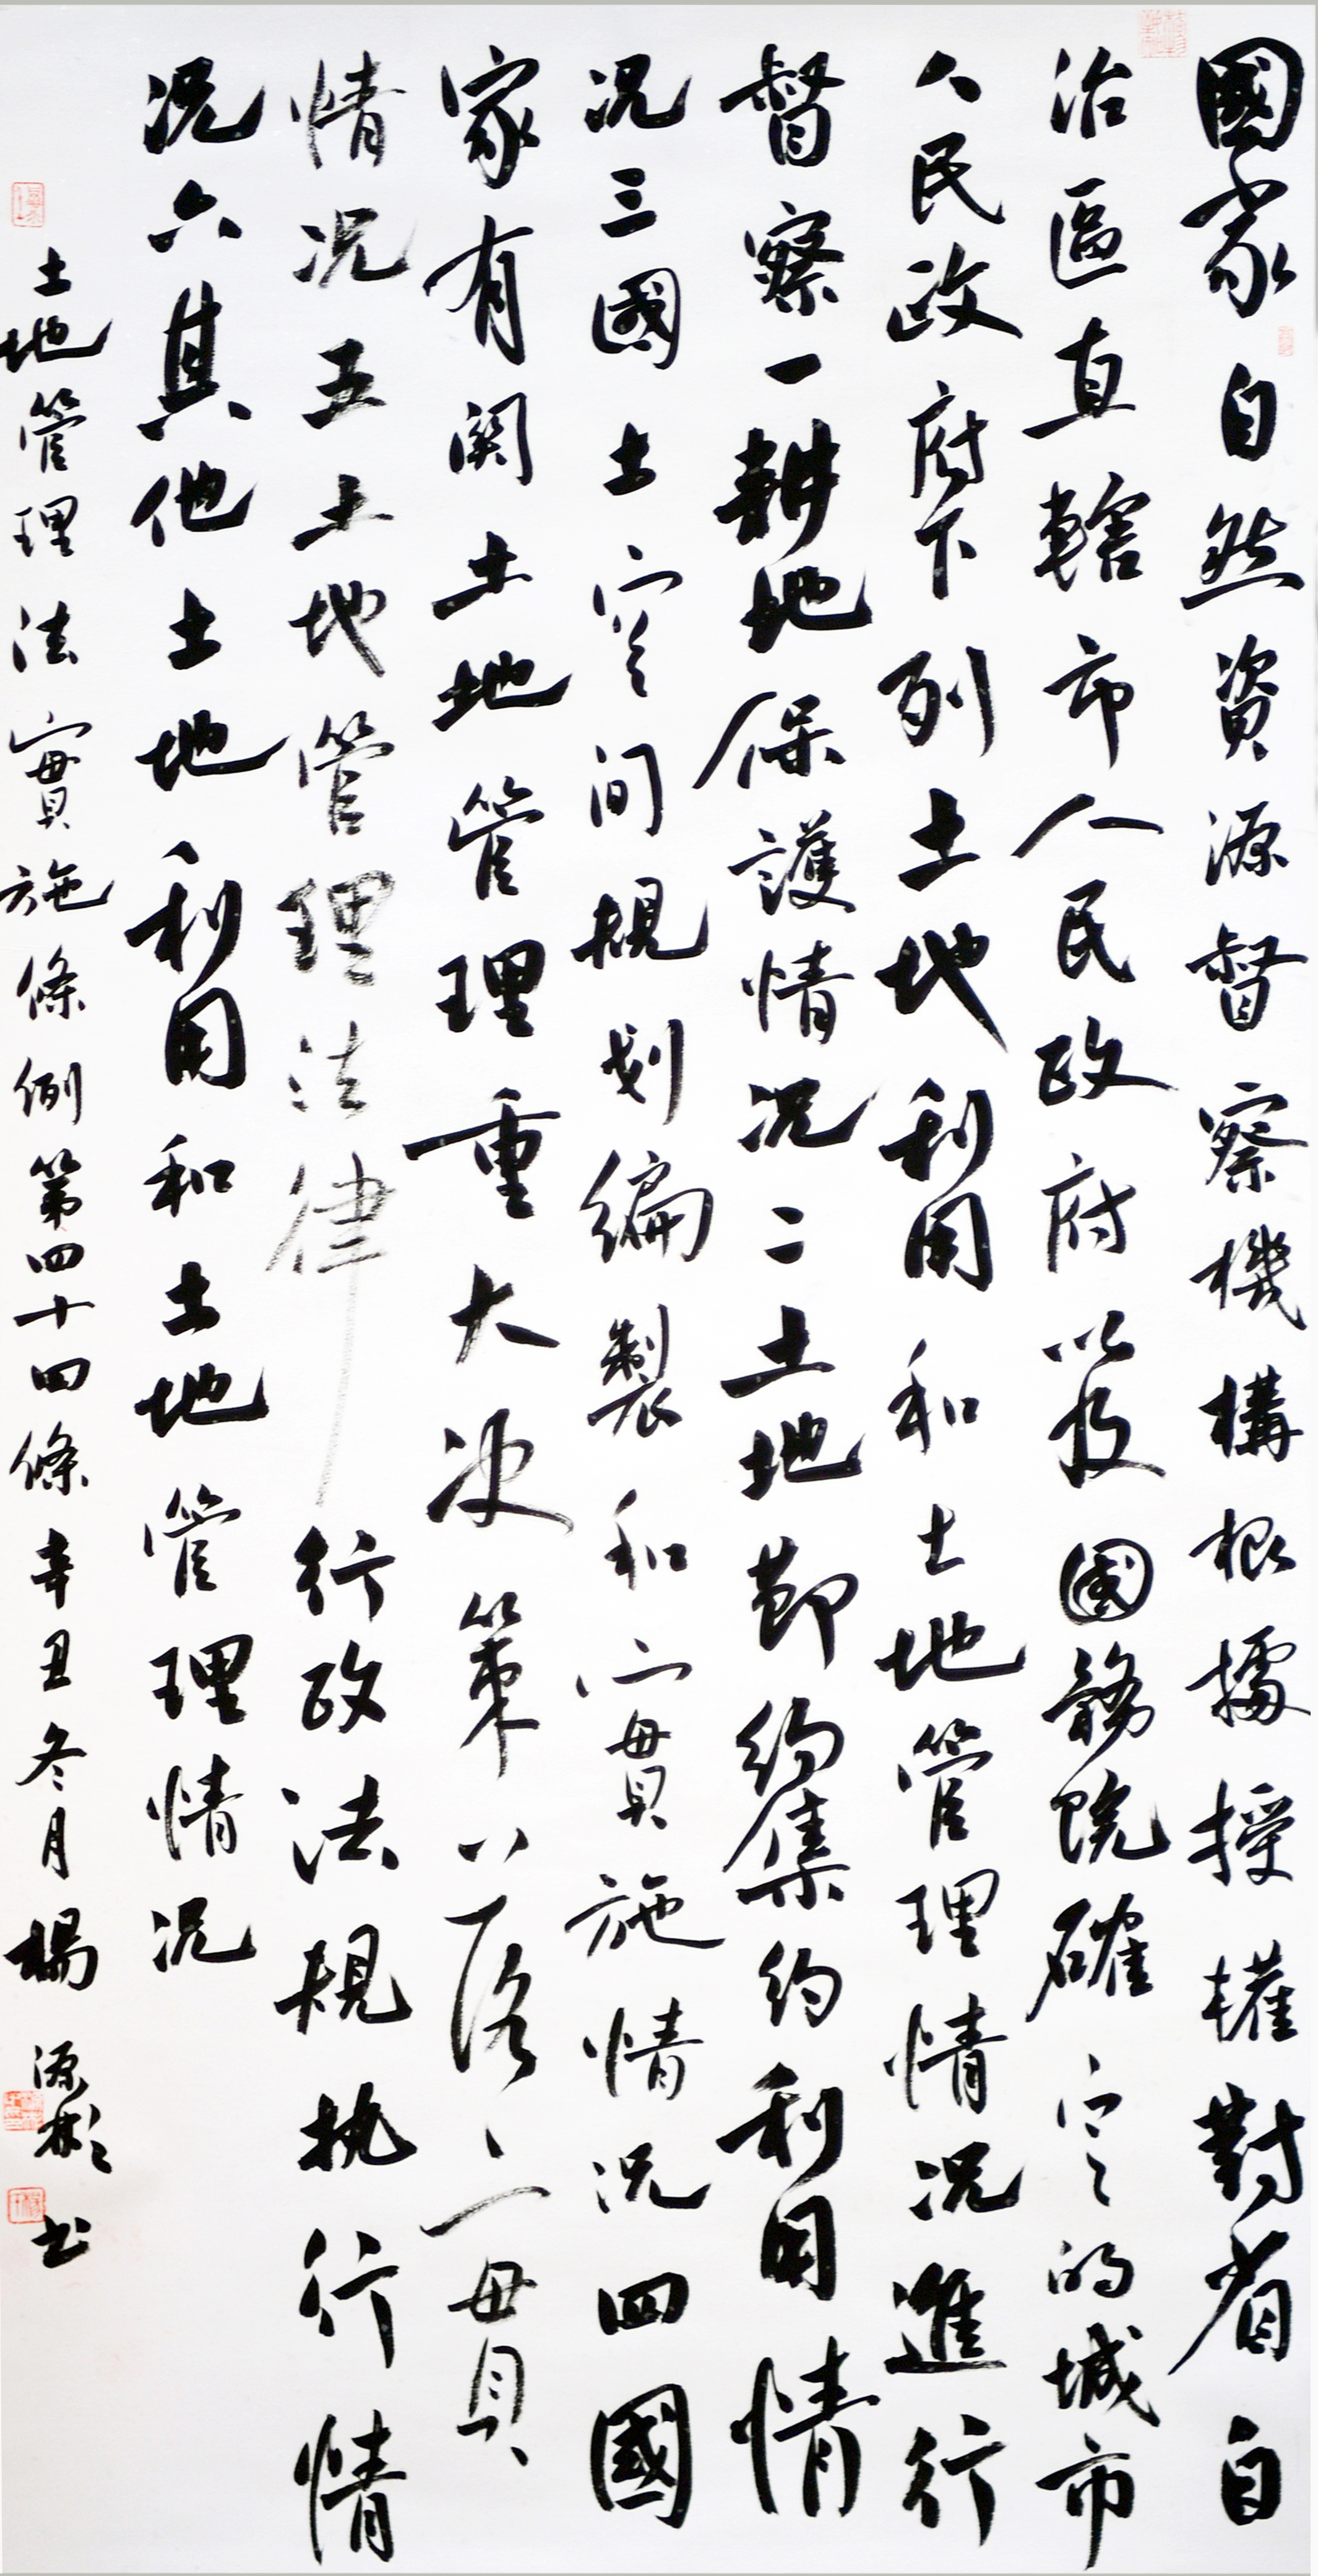 國家自然資源督察機構根據授權對省自
治區直轄市人民政府以及國務院確定的城市
人民政府下列土地利用和土地管理情况進行
督察一耕地保護情况二土地節約集約利用情
况三國土空间規划編製和實施情况四國
家有関土地管理重大决策落實
情况五土地管理法律行政法規执行情
况六其他土地利用和土地管理情况
土地管理法實施條例第四十四條辛丑冬月楊源彬书